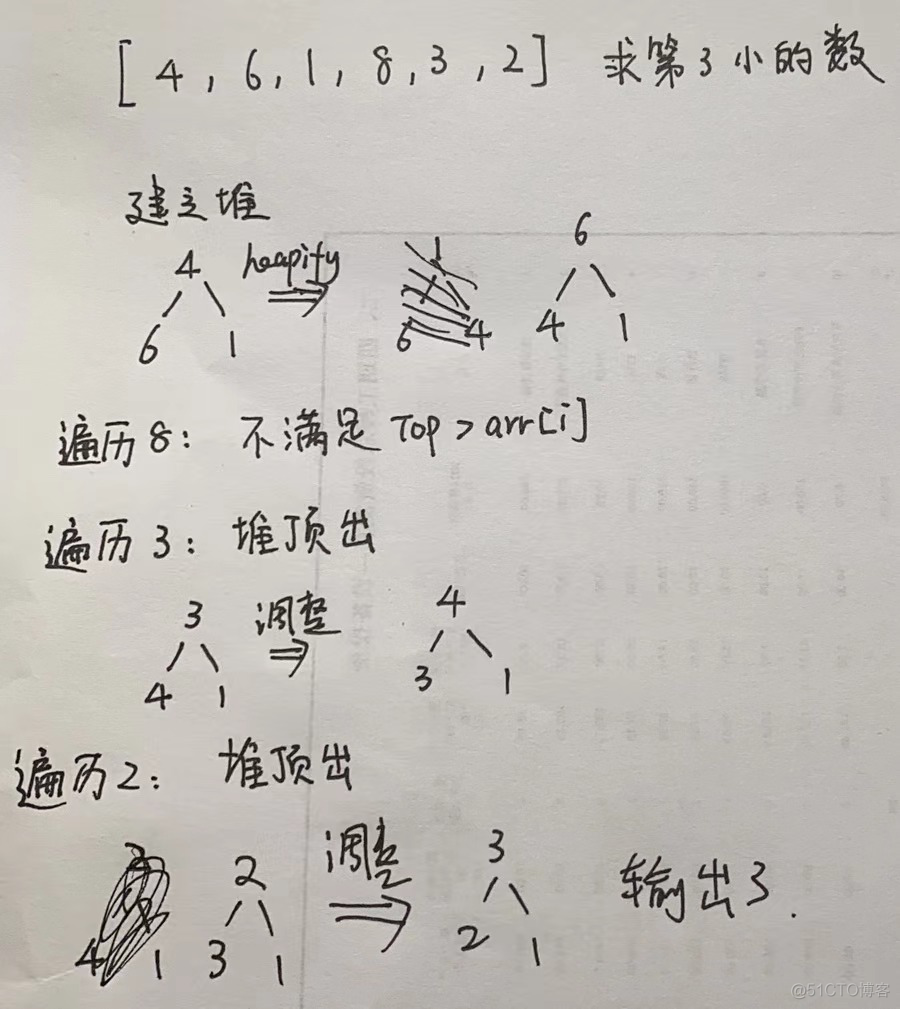 [4, 6, 1, 8, 3, 2] 求第3小的数
建立堆
4 heapify 1 6
6 1 6 4 4 1
遍历8: 不满足 Top > arr[i]
遍历3: 堆顶出
3 调整 4
4 1 3 1
遍历2: 堆顶出
2 调整 3 输出3.
4 1 3 1 2 1
@51CTO博客